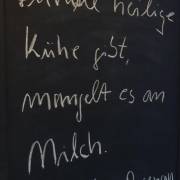 heilige
Kühe gibt,
mangelt es an
Milch.